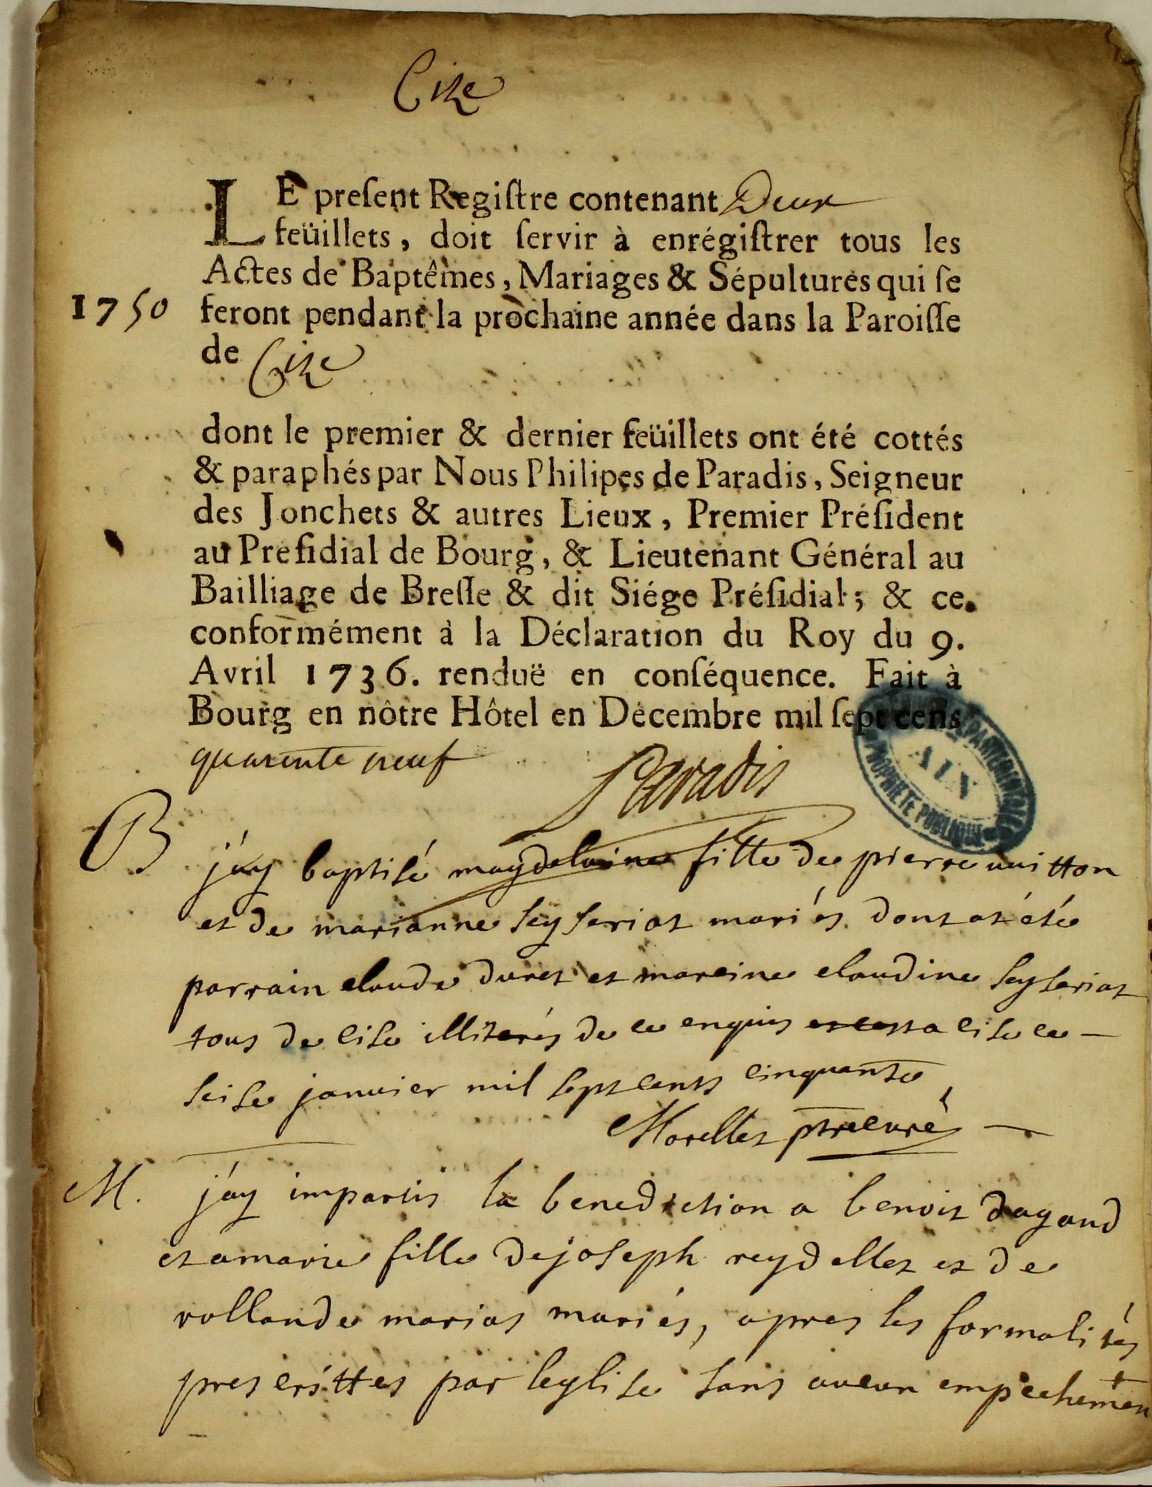 Cize
LE preſent Regiſtre contenant Deux
feüillets, doit ſervir à enrégiſtrer tous les
Actes de Baptêmes, Mariages & Sépultures qui ſe
1750 feront pendant la prochaine année dans la Paroiſſe
de Cize
dont le premier & dernier feüillets ont été cottés
& paraphés par Nous Philipes de Paradis, Seigneur
des Jonchets & autres Lieux, Premier Préſident
au Preſidial de Bourg, & Lieutenant Général au
Bailliage de Breſſe & dit Siége Préſidial; & ce
conformément à la Déclaration du Roy du 9.
Avril 1736. renduë en conſéquence. Fait à
Bourg en nôtre Hôtel en Décembre mil ſept cens
quarente neuf
Paradis
AIN
PROPRIETE PUBLIQUE
B j'ay baptisé magdelaine fille de pierre
et de marianne seyseriat mariés dont at été
parrain claude duret et mareine claudine seyseriat
tous de cise illiterés de ce enquis a cise ce
seise janvier mil sept cents cinquante
Morellet ptre curé
M. j'ay impartis la benediction a benoit dagand
et a marie fille de joseph reydellet et de
rollande marias mariés, apres les formalités
prescrittes par leglise sans aucun empechemen